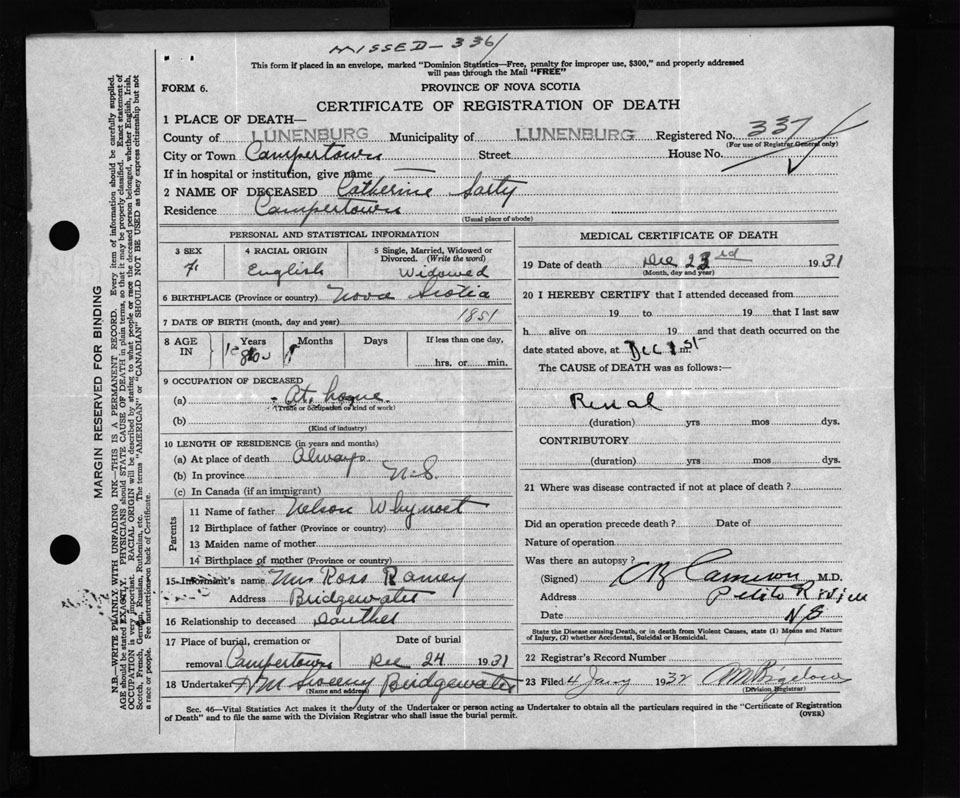 MISSED - 336
This form if placed in an envelope, marked "Dominion Statistics—Free, penalty for improper use, $300," and properly addressed
will pass through the Mail "FREE"
FORM 6.
PROVINCE OF NOVA SCOTIA
CERTIFICATE OF REGISTRATION OF DEATH
1 PLACE OF DEATH—
County of LUNENBURG Municipality of LUNENBURG Registered No. 337
(For use of Registrar General only)
City or Town Campertown Street House No.
If in hospital or institution, give name —
2 NAME OF DECEASED Catherine Sarty
Residence Campertown
(Usual place of abode)
PERSONAL AND STATISTICAL INFORMATION
3 SEX F. 4 RACIAL ORIGIN English 5 Single, Married, Widowed or Divorced. (Write the word) Widowed
6 BIRTHPLACE (Province or country) Nova Scotia
7 DATE OF BIRTH (month, day and year) 1851
8 AGE IN Years 80 Months Days If less than one day, hrs. or min.
9 OCCUPATION OF DECEASED
(a) At home
(Trade or occupation or kind of work)
(b)
(Kind of industry)
10 LENGTH OF RESIDENCE (in years and months)
(a) At place of death Always
(b) In province N.S.
(c) In Canada (if an immigrant)
Parents
11 Name of father Nelson Whynoct
12 Birthplace of father (Province or country)
13 Maiden name of mother
14 Birthplace of mother (Province or country)
15 Informant's name Mrs Ross Ramey
Address Bridgewater
16 Relationship to deceased Dauther
17 Place of burial, cremation or removal Campertown Date of burial Dec 24 1931
18 Undertaker Sweeny Bridgewater
(Name and address)
MEDICAL CERTIFICATE OF DEATH
19 Date of death Dec 23rd 1931
(Month, day and year)
20 I HEREBY CERTIFY that I attended deceased from
19 to 19 that I last saw
h alive on 19 and that death occurred on
date stated above, at Dec 1st m.
The CAUSE of DEATH was as follows:—
Renal
(duration) yrs mos dys.
CONTRIBUTORY
(duration) yrs mos dys.
21 Where was disease contracted if not at place of death?
Did an operation precede death? Date of
Nature of operation
Was there an autopsy?
(Signed) Cameron M.D.
Address Petite Riviere
Date NS
State the Disease causing Death, or in death from Violent Causes, state (1) Means and Nature
of Injury, (2) whether Accidental, Suicidal or Homicidal.
22 Registrar's Record Number
23 Filed 4 Jany 1932 Bigelow
(Division Registrar)
Sec. 46—Vital Statistics Act makes it the duty of the Undertaker or person acting as Undertaker to obtain all the particulars required in the "Certificate of Registration
of Death" and to file the same with the Division Registrar who shall issue the burial permit. (OVER)
MARGIN RESERVED FOR BINDING
N.B.—WRITE PLAINLY, WITH UNFADING INK—THIS IS A PERMANENT RECORD. Every item of information should be carefully supplied.
AGE should be stated EXACTLY. PHYSICIANS should STATE CAUSE OF DEATH in plain terms, so that it may be properly classified. Exact statement of
OCCUPATION is very important. RACIAL ORIGIN will be described by stating to what people or race the deceased person belonged, whether English, Irish,
Scotch, French, German, Russian, Ruthenian, etc. The terms "AMERICAN" or "CANADIAN" SHOULD NOT BE USED as they express citizenship but not
a race or people. See instructions on back of Certificate.